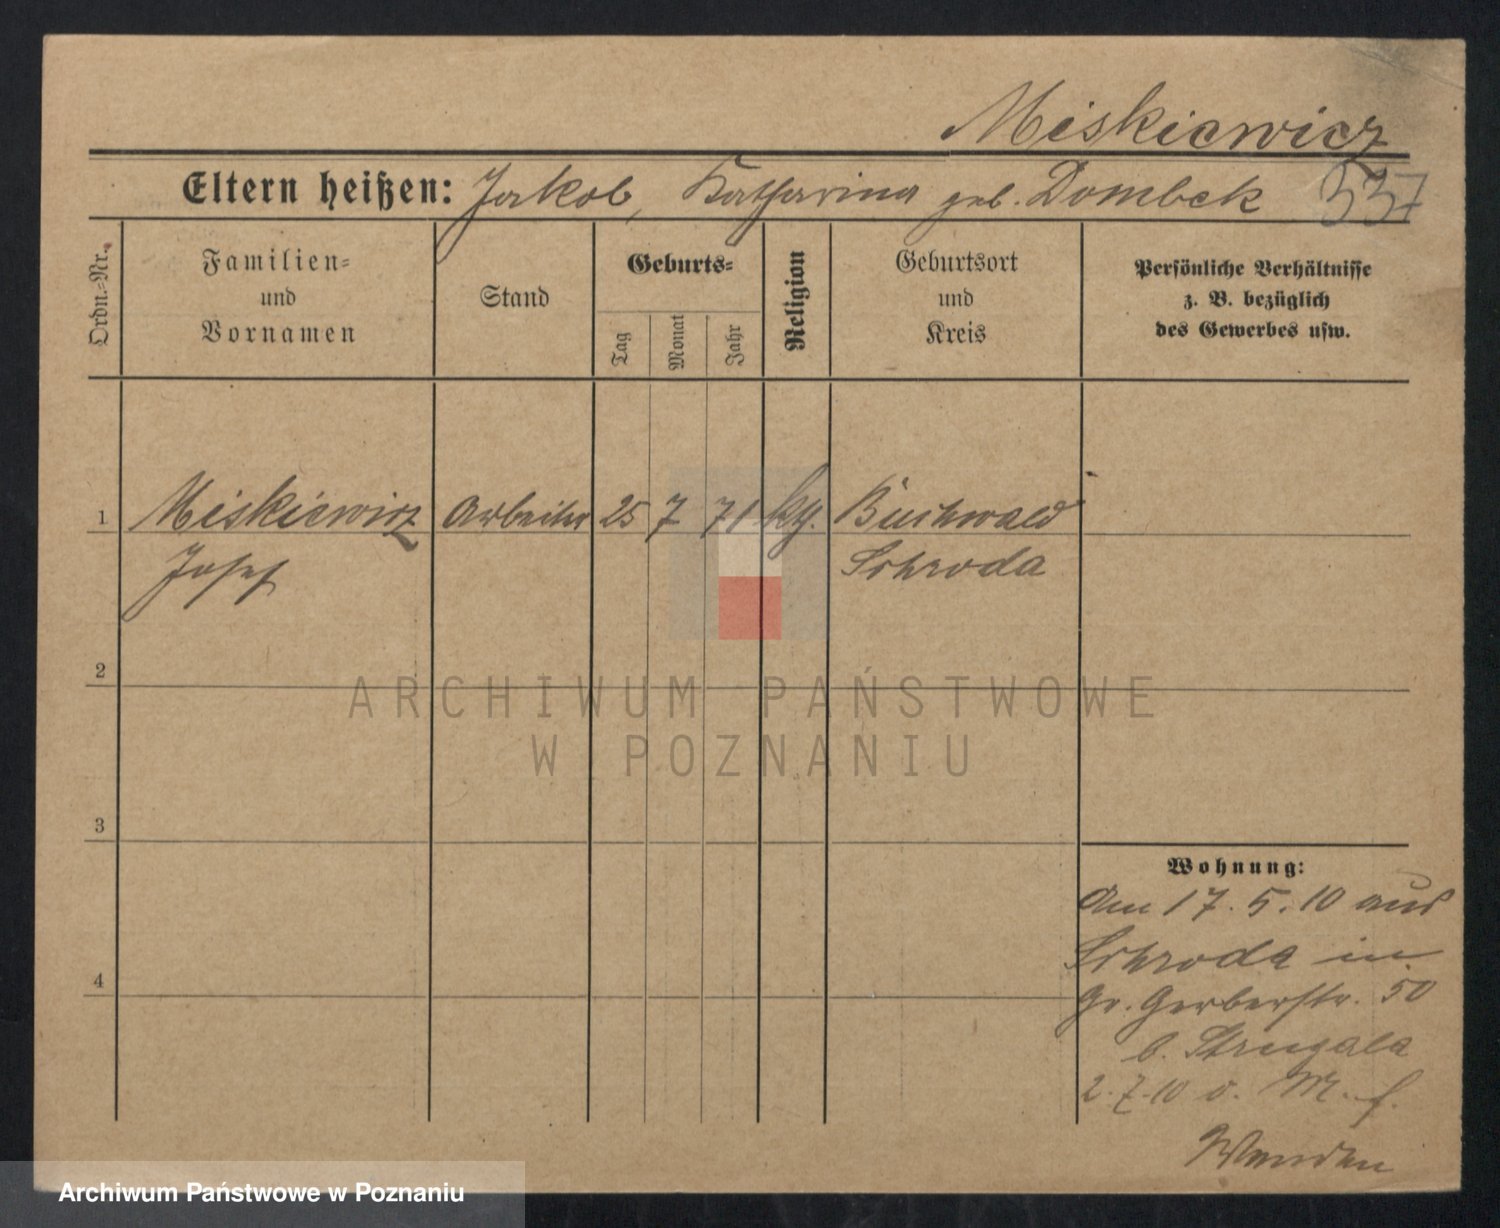 Miskiewicz
Eltern heißen: Jakob, Katharina geb. Dombek 537
Ordn.-Nr.
Familien=
und
Vornamen
Stand
Geburts=
Tag
Monat
Jahr
Religion
Geburtsort
und
Kreis
Persönliche Verhältnisse
z. B. bezüglich
des Gewerbes usw.
1 Miskiewicz Arbeiter 25 7 71 kth. Buchwald
Josef Schroda
2
3
4
Wohnung:
Am 17. 5. 10 aus
Schroda in
Gr. Gerberstr. 50
b. Strugala
2. 7. 10 o. M. f.
ARCHIWUM PAŃSTWOWE
W POZNANIU
Archiwum Państwowe w Poznaniu